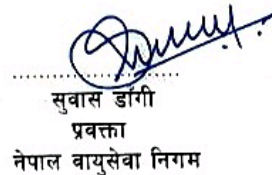 सुवास डाँगी
प्रवक्ता
नेपाल वायुसेवा निगम